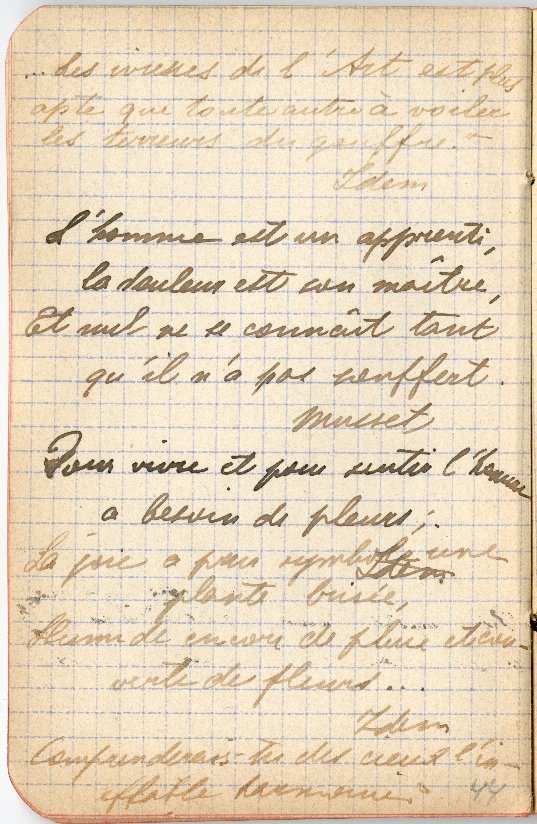 ... des ivresses de l'Art est plus
apte que toute autre à voiler
les terreurs du gouffre."
Idem
L'homme est un apprenti,
la douleur est son maître,
Et nul ne se connaît tant
qu'il n'a pas souffert.
Musset
Pour vivre et pour sentir l'homme
a besoin de pleurs;
La joie a pour symbole une
Idem
plante brisée,
Humide encore de pluie et cou-
verte de fleurs...
Idem
Comprenderais-tu des cieux l'in-
effable harmonie
44